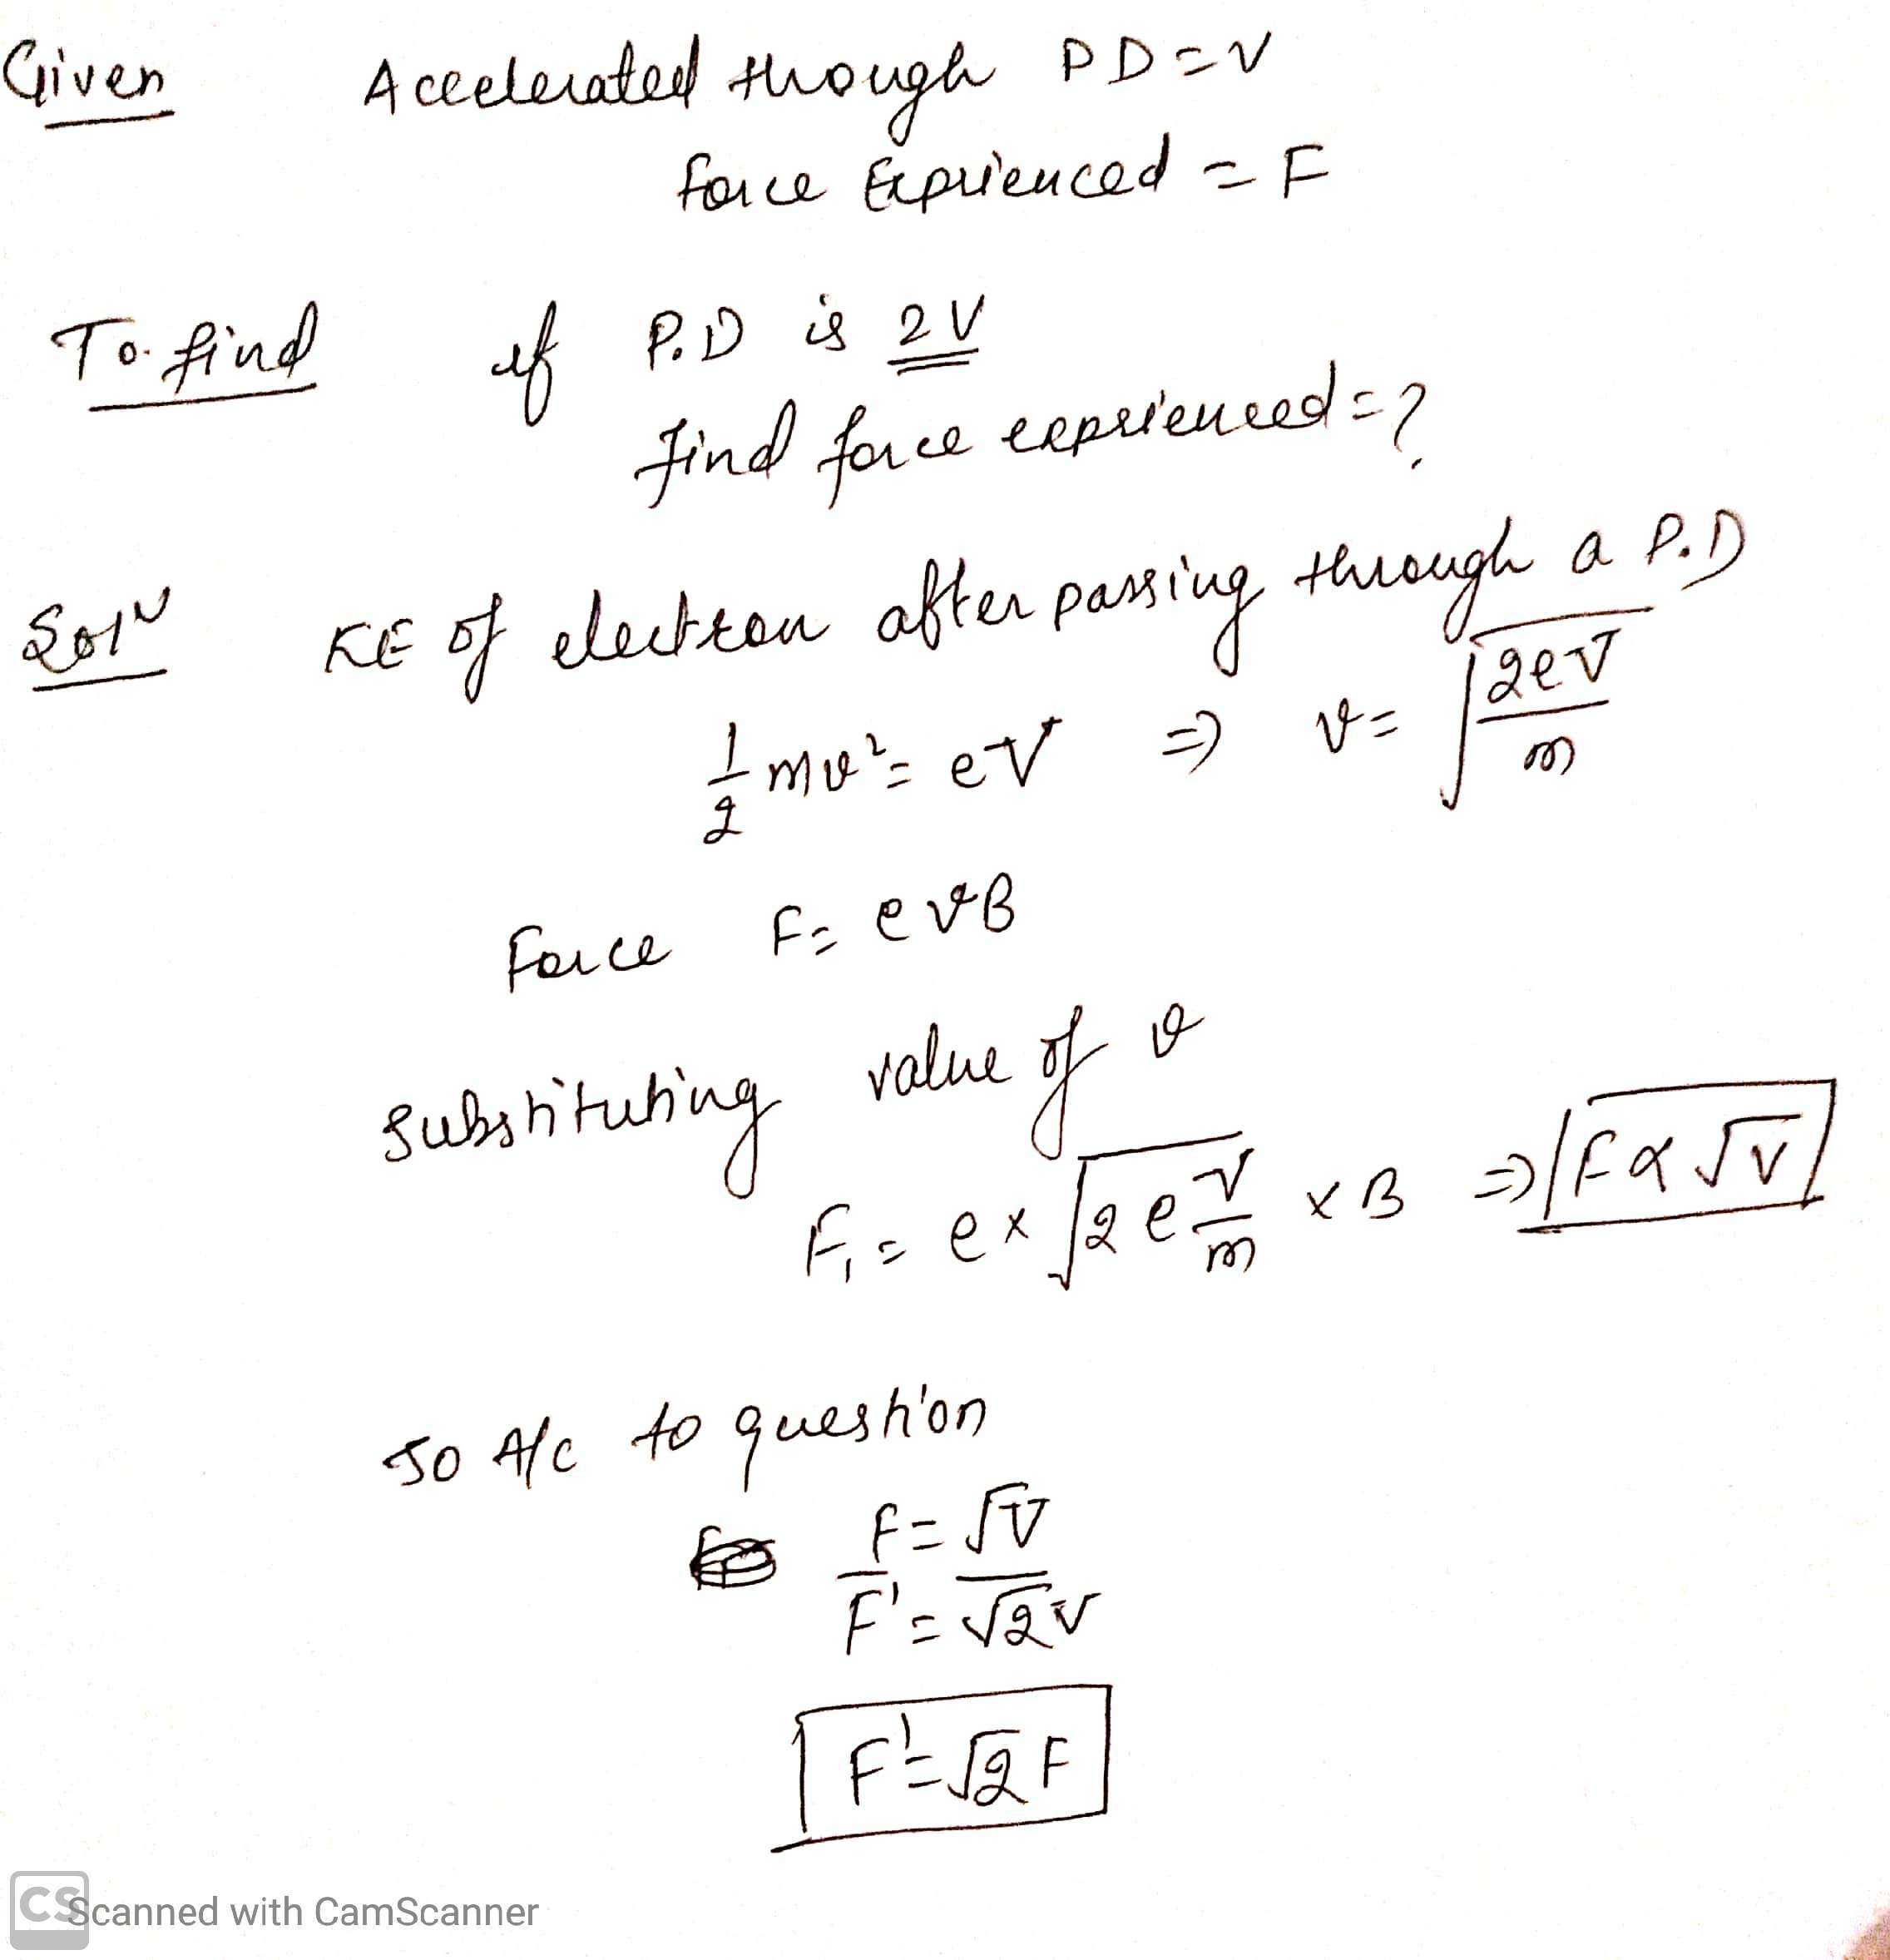 Given Accelerated through PD = V
force Exprienced = F
To find if P.D is 2V
find force exprienced = ?
SolN KE of electron after passing through a P.D
1/2 mv² = eV ⇒ v = √(2eV/m)
Force F = evB
Substituting value of v
F, = e x √(2eV/m) x B ⇒ F α √V
so A/c to question
F/F' = √V/√2V
F' = √2 F
CS Scanned with CamScanner